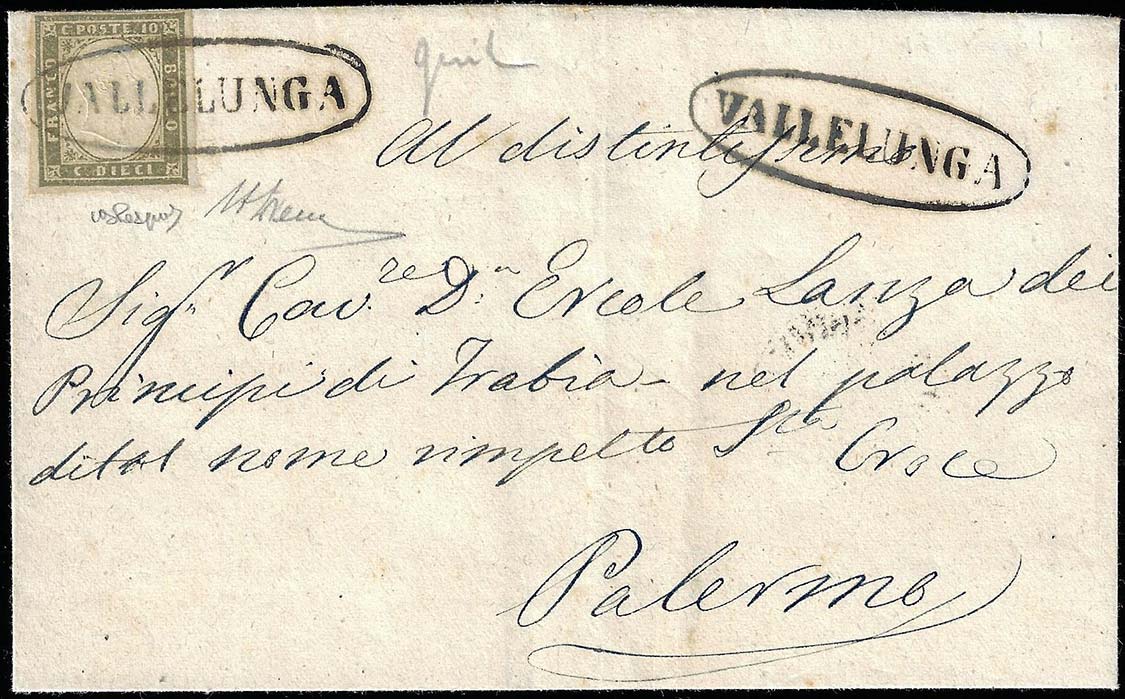 C. POSTE 10
FRANCO
BOLLO
C. DIECI
VALLELUNGA
VALLELUNGA
Al distintissimo
Sigr Cavre Dn Ercole Lanza dei
Principi di Trabia - nel palazzo
di tal nome rimpetto Sta Croce
Palermo